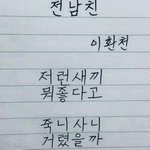 전남친
이환천
저런새끼
뭐좋다고
죽니사니
거렸을까